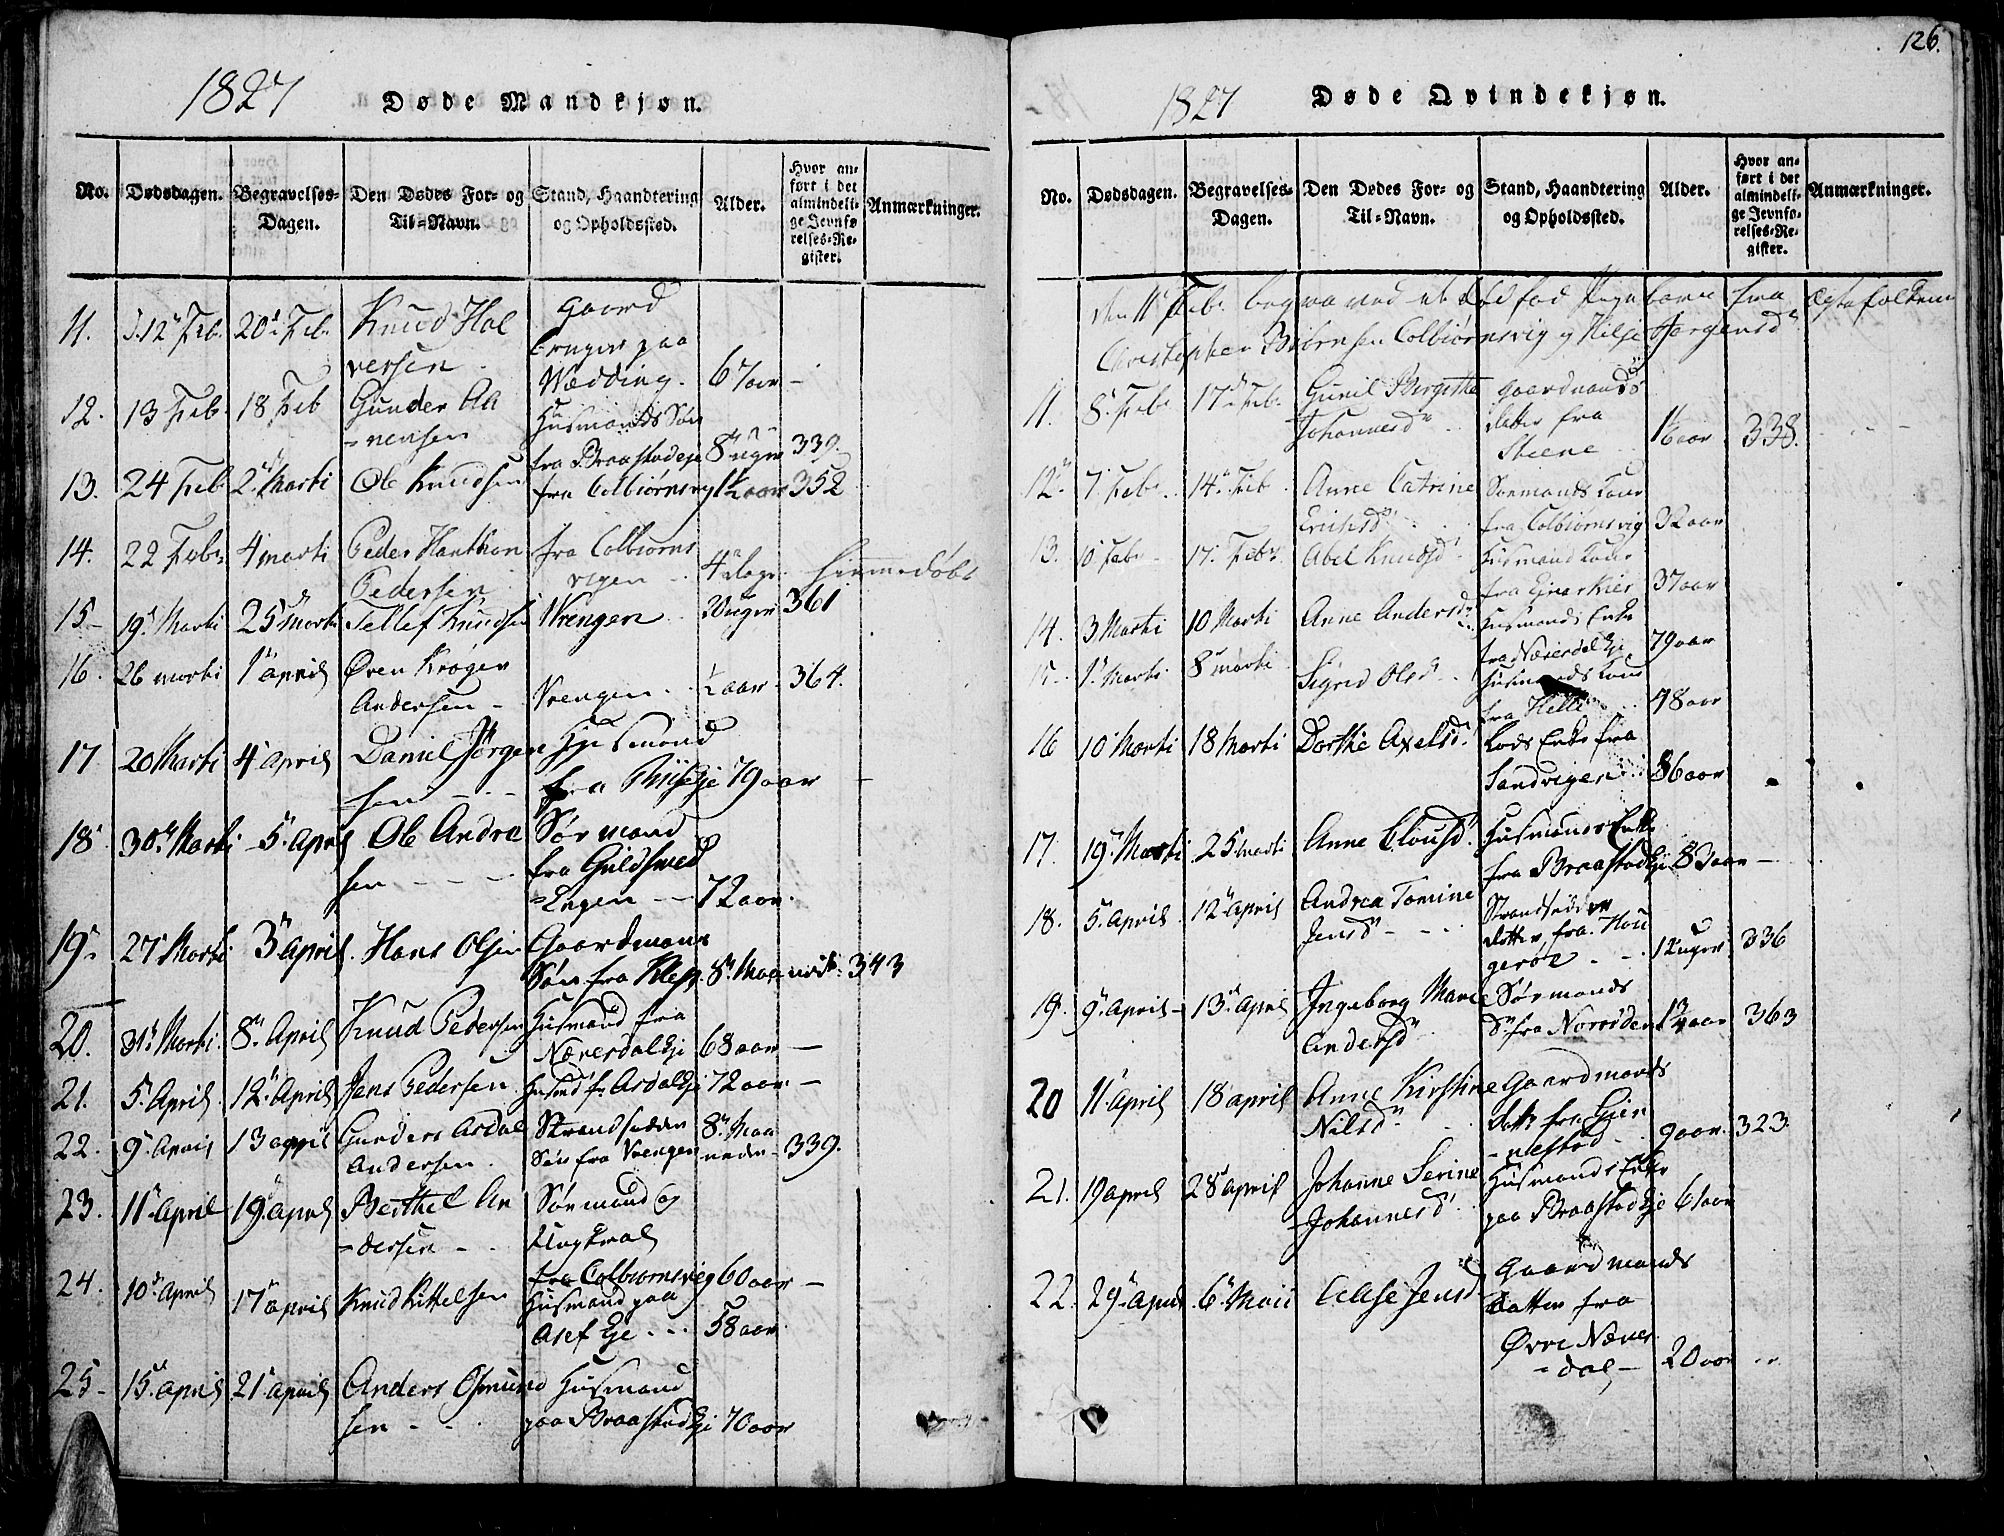 1827 Døde Mandkjøn.
No. Dødsdagen. Begravelses-Dagen. Den Dødes For- og Til-Navn. Stand, Haandtering og Opholdssted. Alder. Hvor anført i det almindelige Jevnførelses-Register. Anmærkninger.
11. 12 Feb. 20 Feb. Knud Hal
versen
Gaard
bruger paa
Wedding. 67 aar –
12. 13 Feb. 18 Feb Gunder Aa
=nensen
Husmands Søn
fra Braastad eje 8 uger 339.
13. 24 Feb 2 Marti Ole Knudsen fra Colbiørnsvig 1½ aar 352
14. 22 Feb. 4 marti Peder Hanthon
Pedersen
fra Colbiørns
vigen 4 dage hiemmedøbt
15– 19 Marti 25 marti Tellef Knudsen Vrengen 20 uger 361
16. 26 marti 1 april Øren Krøger
Andersen –
Vrengen ½ aar 364.
17 20 Marti 4 april Daniel Jørgen
sen
Husmand
fra Riis Eje 79 aar –
18 30 Marti 5 april Ole Andra
sen
Sørmand
fra Guldsmed
=Engen – – 72 aar.
19 27 Marti 3 april Hans Olsen Gaardmans
Søn fra Klep. 8 Maaneder 343
20. 31 Marti 8 April Knud Pedersen Husmand fra
Næverdal Eje 68 aar –
21. 5 April 12 April Jens Pedersen Husmd f. Asdal Eje 72 aar –
22. 9 April 13 appril Gunders Asdal
Andersen
Strandsidder
Søn fra Vrengen 8 Maa
neder 339.
23. 11 April 19 april Berthel An
=dersen –
Sørmand og
fra Colbiørnsvig 60 aar –
24. 10 April 17 april Knud Kittelsen Husmand paa
Asef Eje 58 aar
25– 15 april 21 april Anders Osmund
sen
Husmand
paa Braastad Eje 70 aar
126.
1827 Døde Qvindekjøn.
No. Dødsdagen. Begravelses-Dagen. Den Dødes For- og Til-Navn. Stand, Haandtering og Opholdssted. Alder. Hvor anført i det almindelige Jevnførelses-Register. Anmærkninger.
den 11 Feb. begravned et død fød Pigebarn fra Ægtefolkene
Christopher Biørnsen Colbiørnsvig og Jørgensd
11. 8 Feb. 17 Feb. Gunil Birgitte
Johannesd
gaardmands
datter fra
Steene 338.
12. 7 Feb. 14 Feb Anne Catrine
Erichsd
Sørmands Kone
fra Colbiørnsvig 32 aar
13. 10 Feb. 17 Feb. Abel Knudsd Husmand Kone
37 aar
14. 3 Marti 10 Marti Anne Andersd Husmands Enke
fra Næverdal Eje 79 aar
15. 1 Marti 8 marti Sigrid Olsd Husmands Kone
fra Helle 48 aar
16 10 Marti 18 Marti Dorthe Axelsd Lods Enke fra
Sandvigen 86 aar
17. 19 Marti 25 marti Anne Clousd Husmands Enke
fra Braastad Eje 83 aar –
18. 5 April 12 April Andrea Tomine
Jensd
Strandsidder
datter fra Hou
gerøe 12 uger 336
19. 9 April – 13 april Ingeborg Marie
Andersd
Sørmands
D. fra Norrøden 363
20 11 april 18 april Anne Kirstine
Nilsd
Gaardmands
Datt. fra Gier
=nestad 9 aar. 323.
21. 19 april 28 april Johanne Serine
=Johannesd
Husmands Enke
paa Braastad Eje 61 aar
22. 29 April 6 Maii Aase Jensd Gaardmands
Datter fra
Øvre Næver
=dal – 20 aar